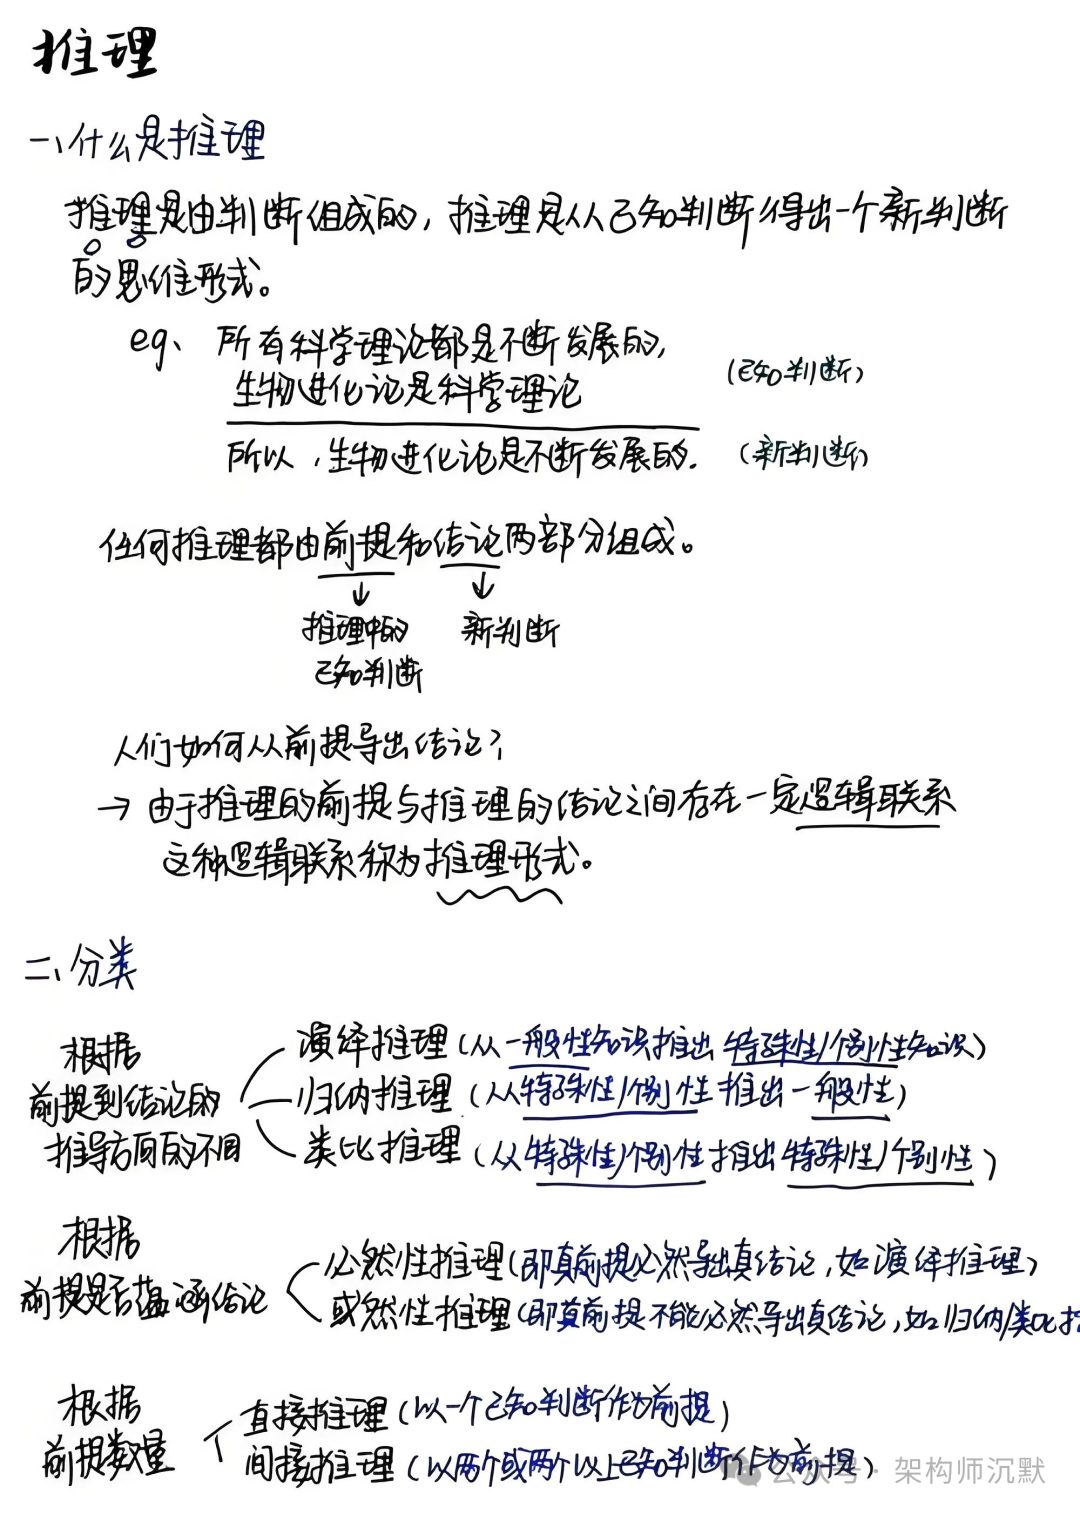 推理
一、什么是推理
推理是由判断组成的，推理是从已知判断得出一个新判断
的思维形式。
eg、所有科学理论都是不断发展的，
生物进化论是科学理论
(已知判断)
所以，生物进化论是不断发展的.
(新判断)
任何推理都由前提和结论两部分组成。
↓ ↓
推理中的 新判断
已知判断
人们如何从前提导出结论？
→ 由于推理的前提与推理的结论之间存在一定逻辑联系
这种逻辑联系称为推理形式。
二、分类
根据
前提到结论的
推导方向的不同
演绎推理(从一般性知识推出特殊性/个别性知识)
归纳推理(从特殊性/个别性推出一般性)
类比推理(从特殊性/个别性推出特殊性/个别性)
根据
前提是否蕴涵结论
必然性推理(即真前提必然导出真结论,如演绎推理)
或然性推理(即真前提不能必然导出真结论,如归纳/类比
根据
前提数量
直接推理(以一个已知判断作为前提)
间接推理(以两个或两个以上已知判断作为前提)
公众号·架构师沉默